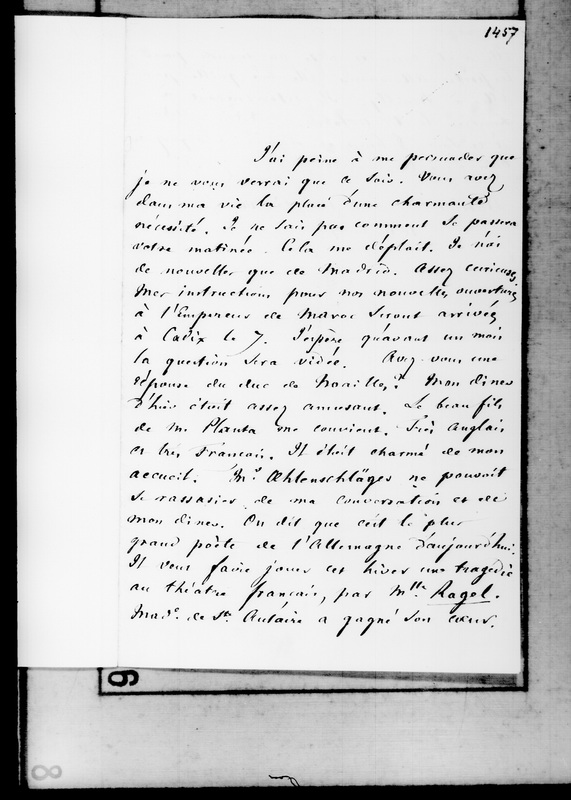 1457
J'ai peine à me persuader que
je ne vous verrai que ce soir. Vous avez
dans ma vie la place d'une charmante
nécessité. Je ne sais pas comment se passera
votre matinée. Cela me déplait. Je n'ai
de nouvelles que de Madrid. Assez curieuses.
Mes instructions pour nos nouvelles ouvertures
à l'Empereur de Maroc seront arrivées
à Cadix le 7. J'espère qu'avant un mois
la question sera vidée. Avez-vous une
réponse du duc de Noailles? Mon diner
d'hier était assez amusant. Le beau fils
de Mr Planta me convient. Très Anglais
et très Français. Il était charmé de mon
accueil. Mr Œhlenschläger ne pouvoit
se rassasier de ma conversation et de
mon diner. On dit que c'est le plus
grand poète de l'Allemagne d'aujourd'hui.
Il veut faire jouer cet hiver une tragédie
au théatre français, par Mlle Ragel.
Made de Ste Aulaire a gagné son cœur.
6
8